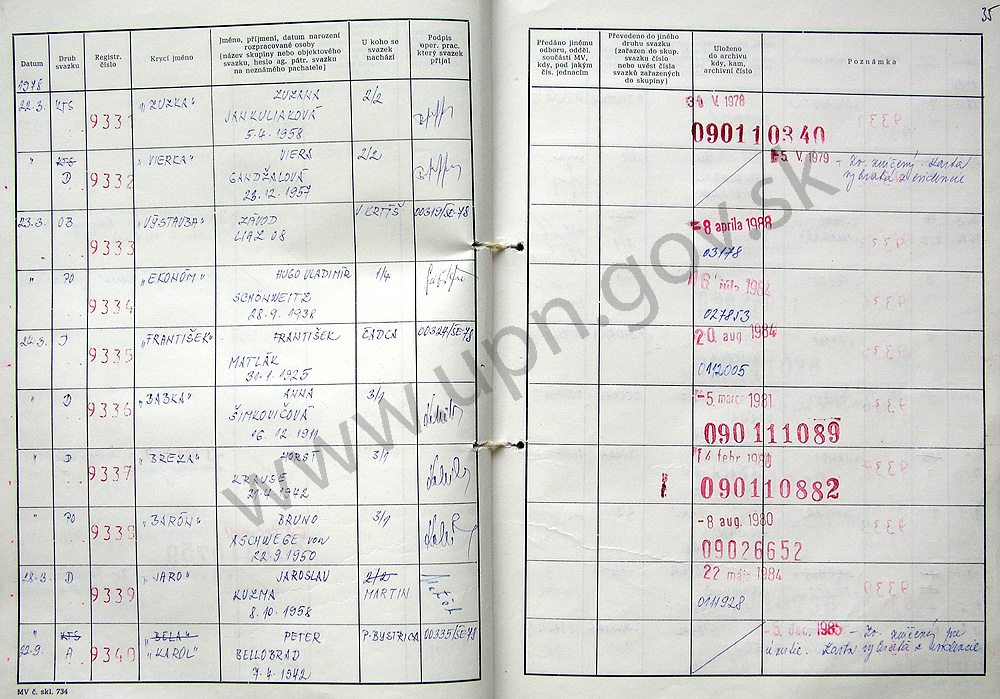 35
Datum
Druh svazku
Registr. číslo
Krycí jméno
Jméno, příjmení, datum narození
rozpracované osoby
(název skupiny nebo objektového
svazku, heslo ag. pátr. svazku
na neznámého pachatele)
U koho se
svazek
nachází
Podpis
oper. prac.
který svazek
přijal
Předáno jinému
odboru, odděl.
součásti MV,
kdy, pod jakým
čís. jednacím
Převedeno do jiného
druhu svazku
(zařazen do skup.
svazku číslo
nebo uvést čísla
svazků zařazených
do skupiny)
Uloženo
do archivu
kdy, kam,
archivní číslo
Poznámka
1978
22.3. KTS 9331 "ZUZKA" ZUZANA 2/2
JANKULIAKOVÁ
5.4.1958
V. 1978
090110340
" KTS 9332 "VIERKA" VIERA 2/2
D GANDŽALOVÁ
23.12.1957
5. V. 1979 - Zv. zničený. Karta
vybratá z evidencie
23.3. OB 9333 "VÝSTAVBA" ZÁVOD V. KRTÍŠ 00319/SE-78
LIAZ 08
-8 apríla 1988
03178
" PO 9334 "EKONÓM" HUGO VLADIMÍR 1/4
SCHÖNWEITZ
28.9.1938
1984
027853
24.3. D 9335 "FRANTIŠEK" FRANTIŠEK ČADCA 00324/SE-78
MATLÁK
31.1.1925
20 aug. 1984
0112005
" D 9336 "BABKA" ANNA 3/1
ŠIMKOVIČOVÁ
16.12.1911
-5. marca 1981
090111089
" D 9337 "BREZA" HORST 3/1
KRAUSE
21.4.1942
14 febr 1980
090110882
" PO 9338 "BARÓN" BRUNO 3/1
ASCHWEGE von
22.9.1950
-8 aug. 1980
09026652
28.3. D 9339 "JARO" JAROSLAV 2/2
KUZMA MARTIN
8.10.1958
22 mája 1984
0111928
" KTS 9340 "BELA" PETER P. BYSTRICA 00335/SE-78
22.9. A "KAROL" BELLOBRAD
7.4.1942
-5. dec. 1985 - Zv. zničený pre
Karta vybratá z evidencie
MV č. skl. 734
www.upn.gov.sk